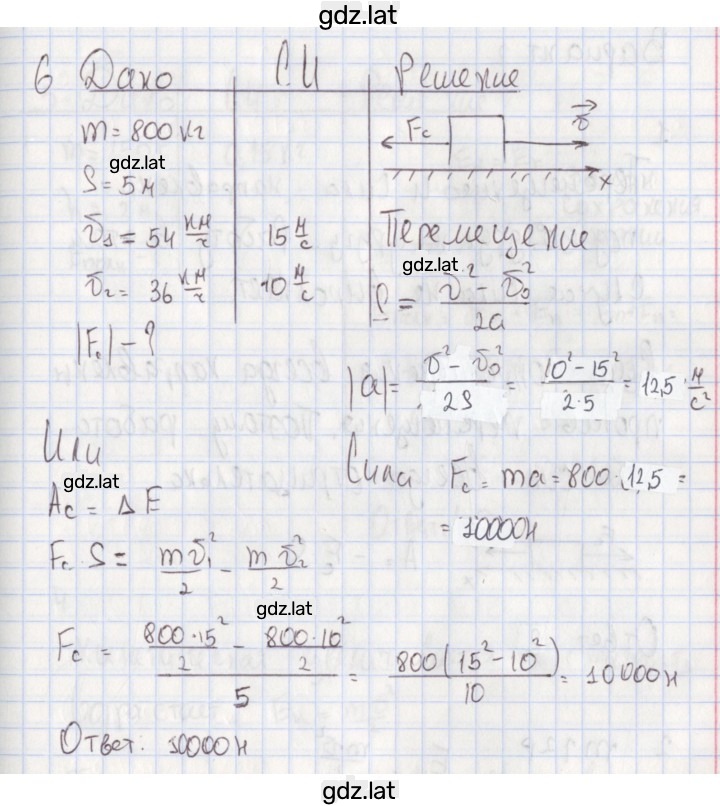 gdz.lat
6 Дано С.И Решение
m = 800 кг
gdz.lat
S = 5 м
v₁ = 54 км/ч 15 м/с
v₂ = 36 км/ч 10 м/с
|Fc| - ?
Fc v x
Перемещение
gdz.lat
S = (v² - v₀²)/2a
|a| = (v² - v₀²)/2S = (10² - 15²)/(2·5) = 12,5 м/с²
Сила Fc = ma = 800·12,5 =
= 10000Н
Или
gdz.lat
Aс = ΔE
Fc·S = mv₁²/2 - mv₂²/2
gdz.lat
Fc = (800·15²/2 - 800·10²/2)/5 = 800(15² - 10²)/10 = 10000Н
Ответ: 10000Н
gdz.lat